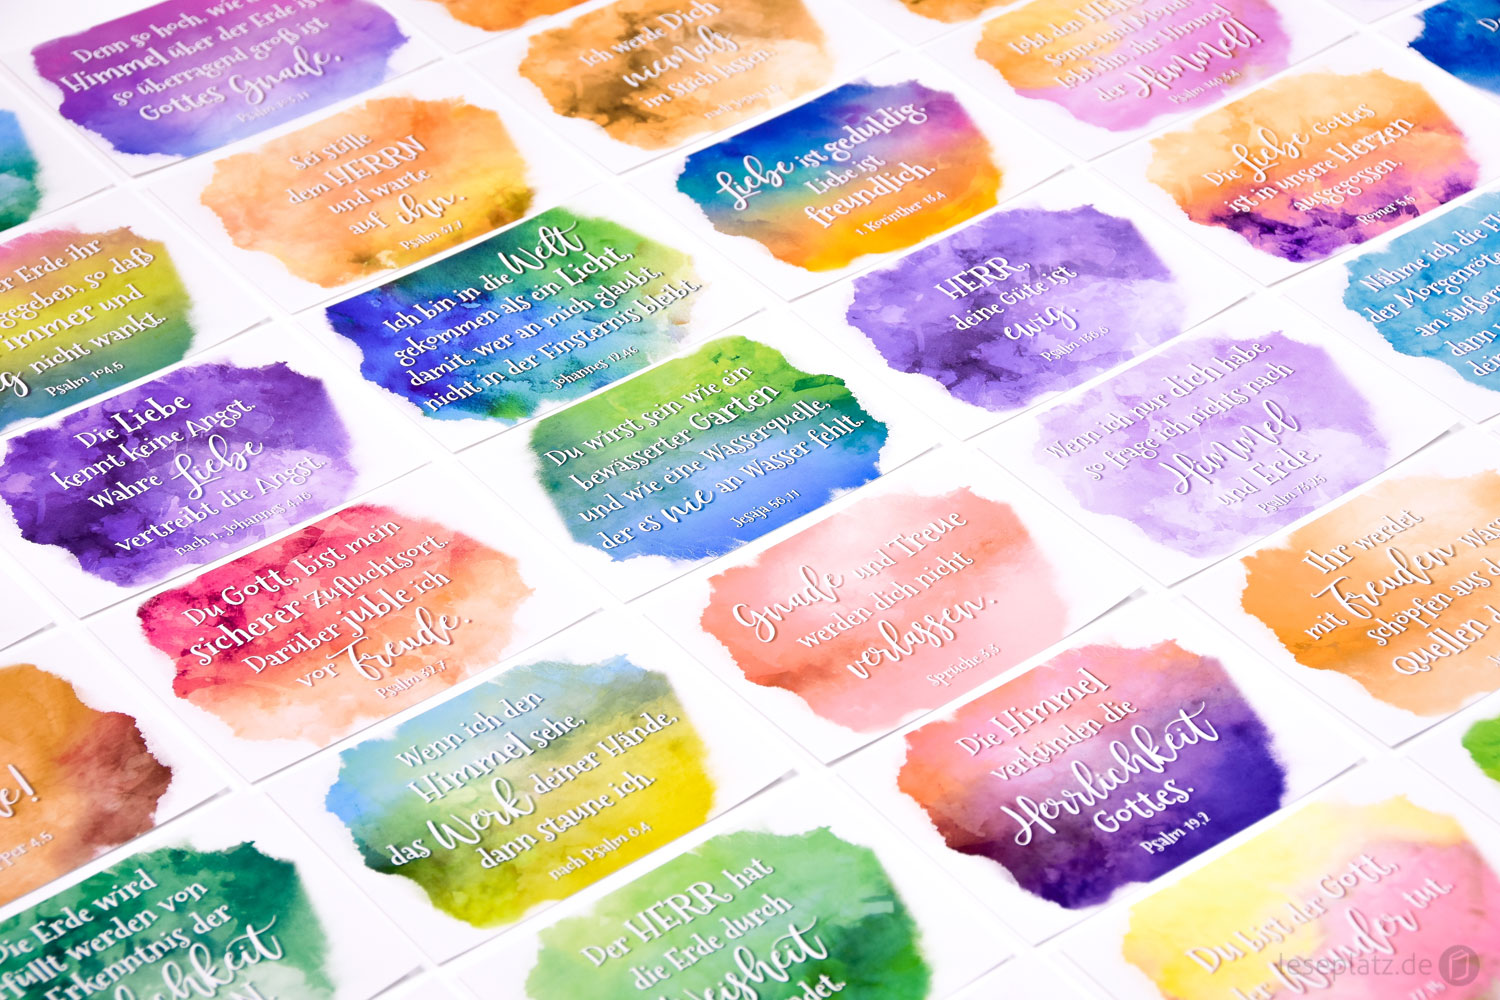 Denn so hoch, wie
Himmel über der Erde ist
so überragend groß ist
Gottes Gnade.
Ich werde Dich
niemals
im Stich lassen.
Lobt den
Sonne und Mond
lobt ihn, ihr Himmel
der Himmel!
Sei stille
dem HERRN
und warte
auf ihn.
Psalm 37,7
Liebe ist geduldig.
Liebe ist
freundlich.
1. Korinther 13,4
Die Liebe Gottes
ist in unsere Herzen
ausgegossen.
Römer 5,5
Erde ihr
gegeben, so daß
immer und
nicht wankt.
Psalm 104,5
Ich bin in die Welt
gekommen als ein Licht,
damit, wer an mich glaubt,
nicht in der Finsternis bleibt.
Johannes 12,46
HERR,
deine Güte ist
ewig.
Psalm 136,6
Nähme ich die
der Morgenröte
am
dann
Die Liebe
kennt keine Angst.
Wahre Liebe
vertreibt die Angst.
nach 1. Johannes 4,16
Du wirst sein wie ein
bewässerter Garten
und wie eine Wasserquelle,
der es nie an Wasser fehlt.
Jesaja 56,11
Wenn ich nur dich habe,
so frage ich nichts nach
Himmel
und Erde.
Psalm 73,25
Du Gott, bist mein
sicherer Zufluchtsort.
Darüber juble ich
vor Freude.
Psalm 59,7
Gnade und Treue
werden dich nicht
verlassen.
Sprüche 3,5
Ihr werdet
mit Freuden
schöpfen aus
Quellen
4,5
Wenn ich den
Himmel sehe,
das Werk deiner Hände,
dann staune ich.
nach Psalm 6,4
Die Himmel
verkünden die
Herrlichkeit
Gottes.
Psalm 19,2
Die Erde wird
erfüllt werden von
Erkenntnis der
Der HERR hat
die Erde durch
Weisheit
Du bist der Gott,
der Wunder tut.
leseplatz.de